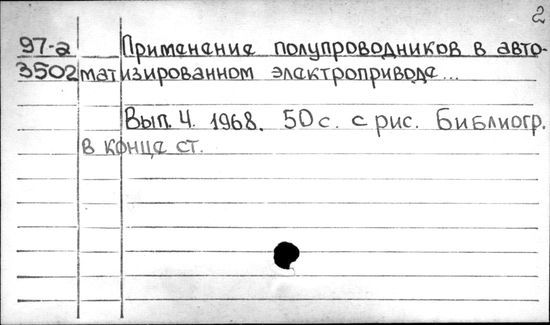 2
97-а Применение полупроводников в авто-
3502 матизированном электроприводе...
Вып. 4. 1968. 50 с. с рис. Библиогр.
в конце ст.